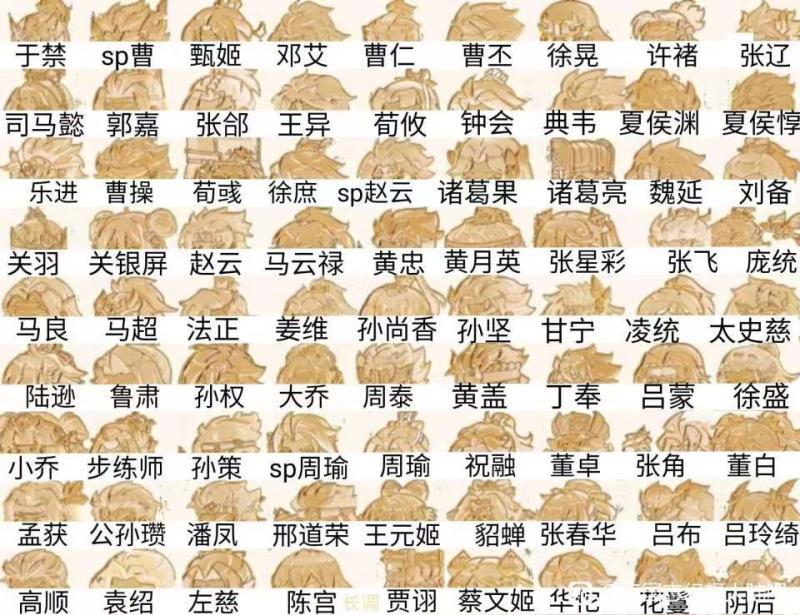 于禁 sp曹 甄姬 邓艾 曹仁 曹丕 徐晃 许褚 张辽
司马懿 郭嘉 张郃 王异 荀攸 钟会 典韦 夏侯渊 夏侯惇
乐进 曹操 荀彧 徐庶 sp赵云 诸葛果 诸葛亮 魏延 刘备
关羽 关银屏 赵云 马云禄 黄忠 黄月英 张星彩 张飞 庞统
马良 马超 法正 姜维 孙尚香 孙坚 甘宁 凌统 太史慈
陆逊 鲁肃 孙权 大乔 周泰 黄盖 丁奉 吕蒙 徐盛
小乔 步练师 孙策 sp周瑜 周瑜 祝融 董卓 张角 董白
孟获 公孙瓒 潘凤 邢道荣 王元姬 貂蝉 张春华 吕布 吕玲绮
高顺 袁绍 左慈 陈宫 长调 贾诩 蔡文姬 华佗 花鬘